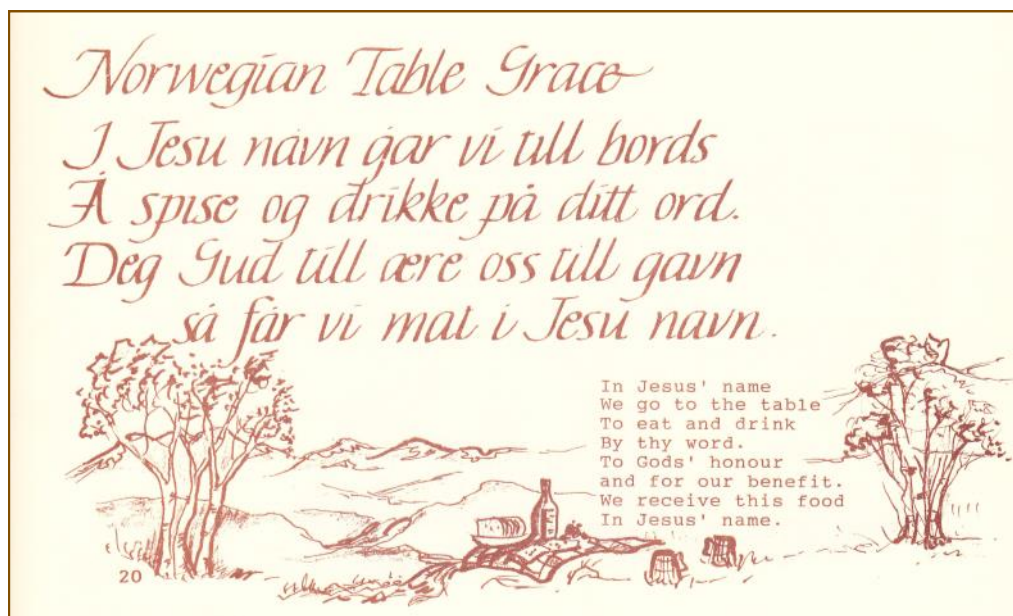 Norwegian Table Grace
I Jesu navn går vi till bords
Å spise og drikke på ditt ord.
Deg Gud till ære oss till gavn
så får vi mat i Jesu navn.
In Jesus' name
We go to the table
To eat and drink
By thy word.
To Gods' honour
and for our benefit.
We receive this food
In Jesus' name.
20